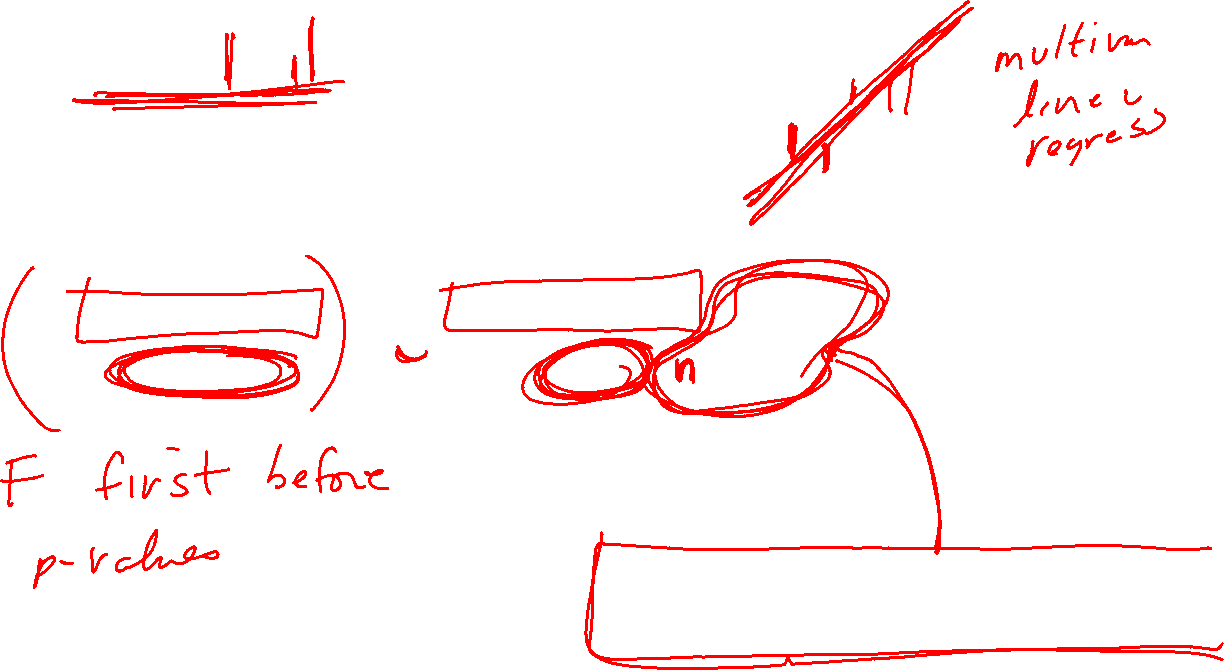 multivar
linear
regress
n
F first before
p-values